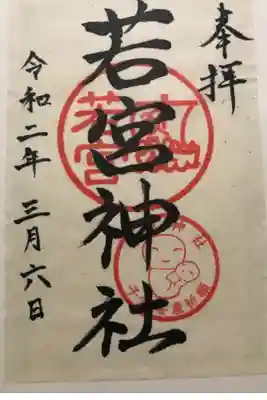 奉拝
若宮神社
令和二年 三月六日
若宮